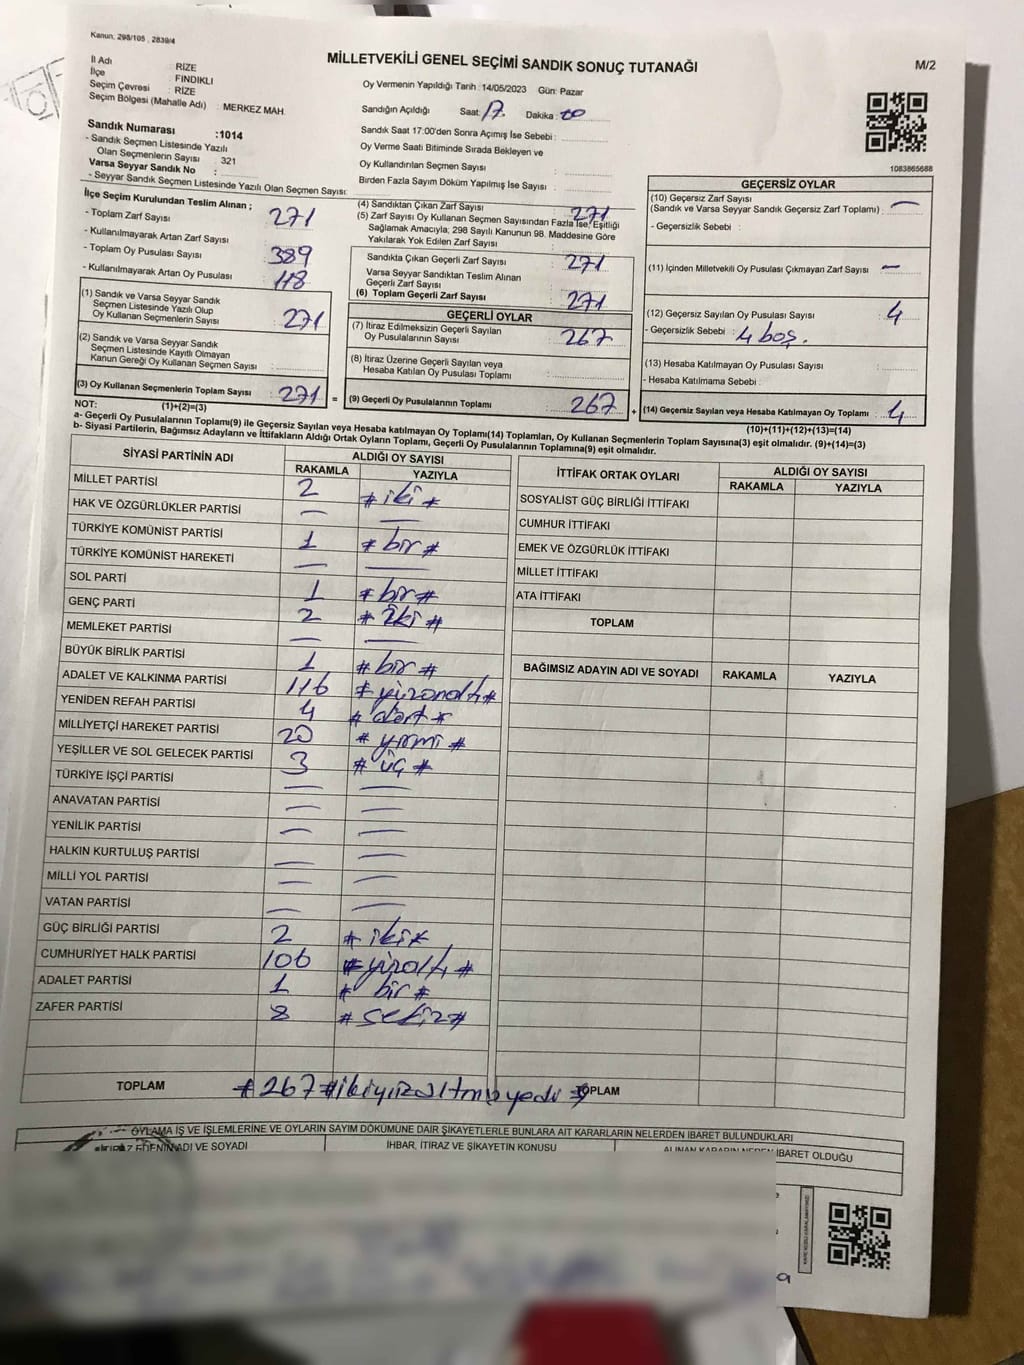 Kanun: 298/105 , 2839/4
MİLLETVEKİLİ GENEL SEÇİMİ SANDIK SONUÇ TUTANAĞI
M/2
İl Adı : RİZE
İlçe : FINDIKLI
Seçim Çevresi : RİZE
Seçim Bölgesi (Mahalle Adı) : MERKEZ MAH.
Sandık Numarası :1014
- Sandık Seçmen Listesinde Yazılı
Olan Seçmenlerin Sayısı : 321
Varsa Seyyar Sandık No :
- Seyyar Sandık Seçmen Listesinde Yazılı Olan Seçmen Sayısı:
Oy Vermenin Yapıldığı Tarih : 14/05/2023 Gün: Pazar
Sandığın Açıldığı Saat: 17. Dakika: 00
Sandık Saat 17:00'den Sonra Açımış İse Sebebi :
Oy Verme Saati Bitiminde Sırada Bekleyen ve
Oy Kullandırılan Seçmen Sayısı :
Birden Fazla Sayım Döküm Yapılmış İse Sayısı :
1083865688
İlçe Seçim Kurulundan Teslim Alınan ;
- Toplam Zarf Sayısı : 271
- Kullanılmayarak Artan Zarf Sayısı :
- Toplam Oy Pusulası Sayısı : 389
- Kullanılmayarak Artan Oy Pusulası : 118
(1) Sandık ve Varsa Seyyar Sandık
Seçmen Listesinde Yazılı Olup
Oy Kullanan Seçmenlerin Sayısı : 271
(2) Sandık ve Varsa Seyyar Sandık
Seçmen Listesinde Kayıtlı Olmayan
Kanun Gereği Oy Kullanan Seçmen Sayısı :
(3) Oy Kullanan Seçmenlerin Toplam Sayısı : 271 =
(4) Sandıktan Çıkan Zarf Sayısı : 271
(5) Zarf Sayısı Oy Kullanan Seçmen Sayısından Fazla İse, Eşitliği
Sağlamak Amacıyla; 298 Sayılı Kanunun 98. Maddesine Göre
Yakılarak Yok Edilen Zarf Sayısı :
Sandıkta Çıkan Geçerli Zarf Sayısı : 271
Varsa Seyyar Sandıktan Teslim Alınan
Geçerli Zarf Sayısı :
(6) Toplam Geçerli Zarf Sayısı : 271
GEÇERLİ OYLAR
(7) İtiraz Edilmeksizin Geçerli Sayılan
Oy Pusulalarının Sayısı : 267
(8) İtiraz Üzerine Geçerli Sayılan veya
Hesaba Katılan Oy Pusulası Toplamı :
(9) Geçerli Oy Pusulalarının Toplamı : 267 +
GEÇERSİZ OYLAR
(10) Geçersiz Zarf Sayısı
(Sandık ve Varsa Seyyar Sandık Geçersiz Zarf Toplamı) : —
- Geçersizlik Sebebi :
(11) İçinden Milletvekili Oy Pusulası Çıkmayan Zarf Sayısı : —
(12) Geçersiz Sayılan Oy Pusulası Sayısı : 4
- Geçersizlik Sebebi : 4 boş.
(13) Hesaba Katılmayan Oy Pusulası Sayısı :
- Hesaba Katılmama Sebebi :
(14) Geçersiz Sayılan veya Hesaba Katılmayan Oy Toplamı : 4
NOT: (1)+(2)=(3)
(10)+(11)+(12)+(13)=(14)
a- Geçerli Oy Pusulalarının Toplamı(9) ile Geçersiz Sayılan veya Hesaba katılmayan Oy Toplamı(14) Toplamları, Oy Kullanan Seçmenlerin Toplam Sayısına(3) eşit olmalıdır. (9)+(14)=(3)
b- Siyasi Partilerin, Bağımsız Adayların ve İttifakların Aldığı Ortak Oyların Toplamı, Geçerli Oy Pusulalarının Toplamına(9) eşit olmalıdır.
SİYASİ PARTİNİN ADI ALDIĞI OY SAYISI
RAKAMLA YAZIYLA
MİLLET PARTİSİ 2 # iki #
HAK VE ÖZGÜRLÜKLER PARTİSİ — —
TÜRKİYE KOMÜNİST PARTİSİ 1 # bir #
TÜRKİYE KOMÜNİST HAREKETİ — —
SOL PARTİ 1 # bir #
GENÇ PARTİ 2 # iki #
MEMLEKET PARTİSİ — —
BÜYÜK BİRLİK PARTİSİ 1 # bir #
ADALET VE KALKINMA PARTİSİ 116 # yüzonaltı #
YENİDEN REFAH PARTİSİ 4 # dört #
MİLLİYETÇİ HAREKET PARTİSİ 20 # yirmi #
YEŞİLLER VE SOL GELECEK PARTİSİ 3 # üç #
TÜRKİYE İŞÇİ PARTİSİ — —
ANAVATAN PARTİSİ — —
YENİLİK PARTİSİ — —
HALKIN KURTULUŞ PARTİSİ — —
MİLLİ YOL PARTİSİ — —
VATAN PARTİSİ — —
GÜÇ BİRLİĞİ PARTİSİ 2 # iki #
CUMHURİYET HALK PARTİSİ 106 # yüzaltı #
ADALET PARTİSİ 1 # bir #
ZAFER PARTİSİ 8 # sekiz #
TOPLAM # 267 # ikiyüzaltmışyedi #
İTTİFAK ORTAK OYLARI ALDIĞI OY SAYISI
RAKAMLA YAZIYLA
SOSYALİST GÜÇ BİRLİĞİ İTTİFAKI
CUMHUR İTTİFAKI
EMEK VE ÖZGÜRLÜK İTTİFAKI
MİLLET İTTİFAKI
ATA İTTİFAKI
TOPLAM
BAĞIMSIZ ADAYIN ADI VE SOYADI RAKAMLA YAZIYLA
TOPLAM
OYLAMA İŞ VE İŞLEMLERİNE VE OYLARIN SAYIM DÖKÜMÜNE DAİR ŞİKAYETLERLE BUNLARA AİT KARARLARIN NELERDEN İBARET BULUNDUKLARI
EDENİN ADI VE SOYADI İHBAR, İTİRAZ VE ŞİKAYETİN KONUSU ALINAN KARARIN NEDEN İBARET OLDUĞU